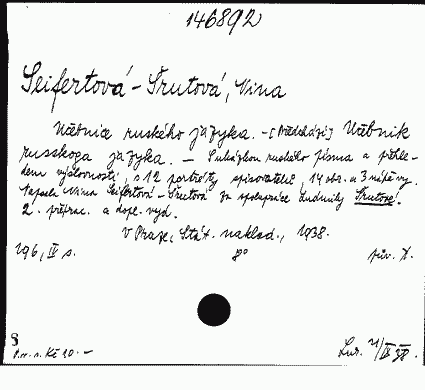 146892
Seifertová-Šrutová, Nina
Učebnice ruského jazyka. - [Předchází] Učebnik
russkoga jazyka. - S ukázkou ruského písma a přehle-
dem výslovnosti, s 12 portréty spisovatelů, 14 obr. a 3 nápěvy.
Napsala Nina Seifertová-Šrutová za spolupráce Ludmily Šrutové.
2. přeprac. a dopl. vyd.
V Praze, Stát. naklad., 1938.
196, IV s. 8° pův. v.
8
Kč 20.-